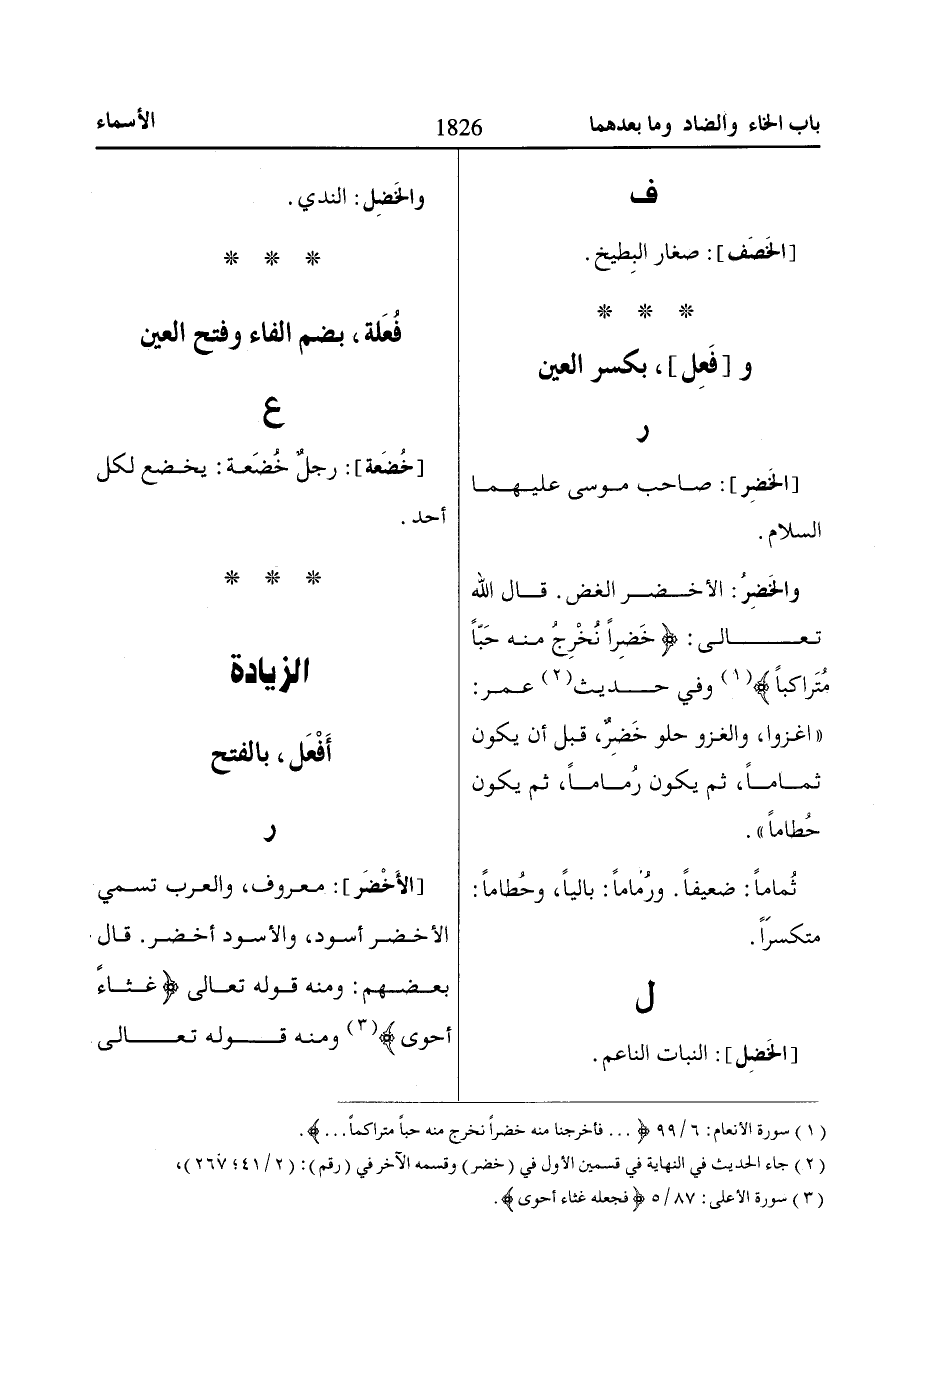 باب الخاء والضاد وما بعدهما
1826
الأسماء
ف
[الخَضَف]: صغار البطيخ.
* * *
و [فَعِل]، بكسر العين
ر
[الخَضِر]: صاحب موسى عليهما
السلام.
والخَضِرُ: الأخضر الغض. قال الله
تعالى: ﴿ خَضِراً نُخْرِجُ منه حَبّاً
مُتَراكباً﴾(١) وفي حديث(٢) عمر:
«اغزوا، والغزو حلو خَضِرٌ، قبل أن يكون
ثماماً، ثم يكون رُماماً، ثم يكون
حُطاماً».
ثُماماً: ضعيفاً. ورُماماً: بالياً، وحُطاماً:
متكسراً.
ل
[الخَضِل]: النبات الناعم.
والخَضِل: الندي.
* * *
فُعَلة، بضم الفاء وفتح العين
ع
[خُضَعة]: رجلٌ خُضَعة: يخضع لكل
أحد.
* * *
الزيادة
أَفْعَل، بالفتح
ر
[الأَخْضَر]: معروف، والعرب تسمي
الأخضر أسود، والأسود أخضر. قال
بعضهم: ومنه قوله تعالى ﴿ غثاءً
أحوى﴾(٣) ومنه قوله تعالى
(١) سورة الأنعام: ٦/ ٩٩ ﴿ ... فأخرجنا منه خضراً نخرج منه حباً متراكماً...﴾.
(٢) جاء الحديث في النهاية في قسمين الأول في (خضر) وقسمه الآخر في (رقم): (٢/ ٤١؛ ٢٦٧)،
(٣) سورة الأعلى: ٨٧/ ٥ ﴿ فجعله غثاء أحوى﴾.